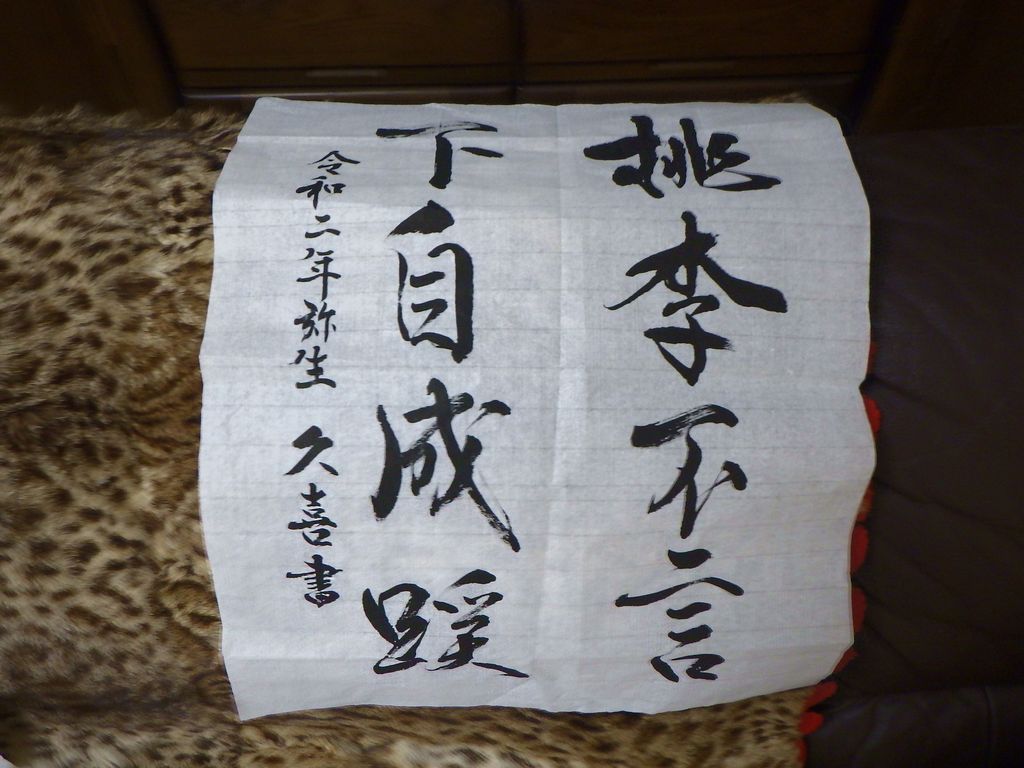 桃李不言
下自成蹊
令和二年弥生 久喜書